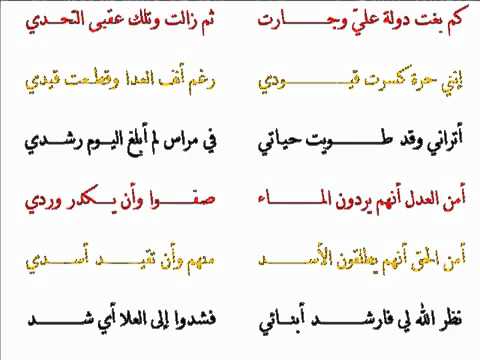 كم بغت دولة علي وجارت ثم زالت وتلك عقبى التحدي
إنني حرة كسرت قيودي رغم أنف العدا وقطعت قيدي
أتراني وقد طويت حياتي في مراس لم أبلغ اليوم رشدي
أمن العدل أنهم يردون الماء صفوا وأن يكدر وردي
أمن الحق أنهم يطلقون الأسد منهم وأن تقيد أسدي
نظر الله لي فارشد أبنائي فشدوا إلى العلا أي شد